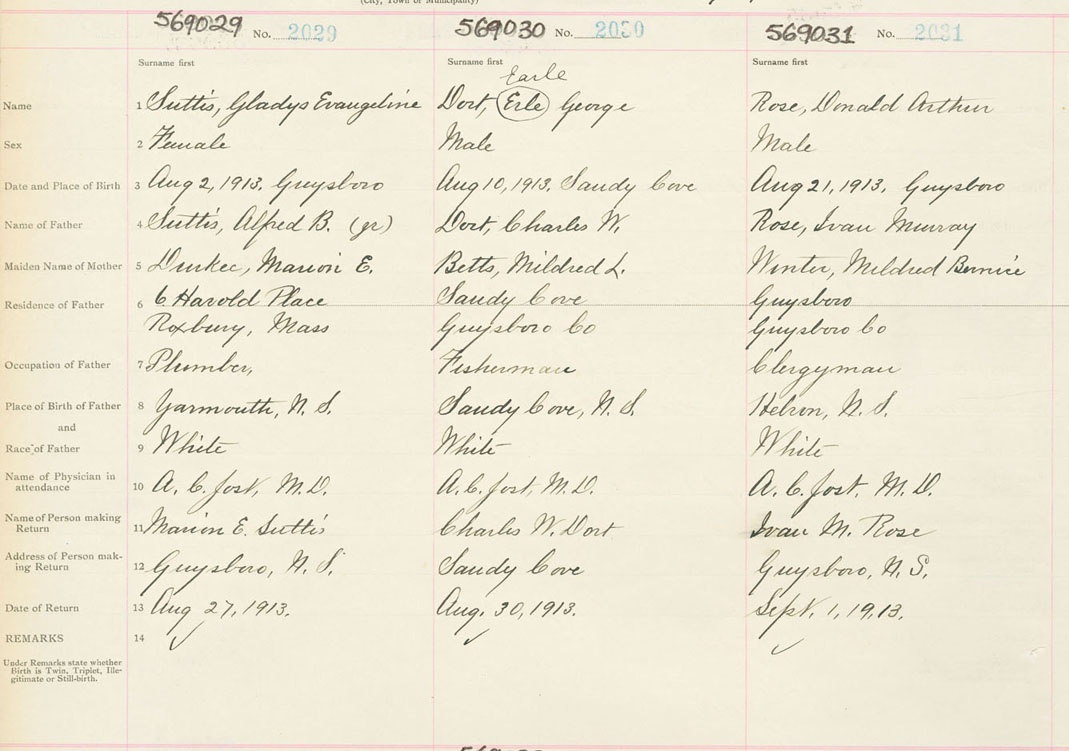 (City, Town or Municipality)
569029 No. 2029
569030 No. 2030
569031 No. 2031
Surname first Surname first Surname first
Earle
Name 1 Suttis, Gladys Evangeline Dort, Erle George Rose, Donald Arthur
Sex 2 Female Male Male
Date and Place of Birth 3 Aug 2, 1913, Guysboro Aug 10, 1913. Sandy Cove Aug 21, 1913, Guysboro
Name of Father 4 Suttis, Alfred B. (jr) Dort, Charles W. Rose, Ivan Murray
Maiden Name of Mother 5 Durkee, Marion E. Betts, Mildred L. Winter, Mildred Bernice
Residence of Father 6 6 Harold Place Sandy Cove Guysboro
Roxbury, Mass Guysboro Co Guysboro Co
Occupation of Father 7 Plumber, Fisherman Clergyman
Place of Birth of Father 8 Yarmouth, N.S. Sandy Cove, N.S. Hebron, N.S.
and
Race of Father 9 White White White
Name of Physician in
attendance 10 A.C. Jost, M.D. A.C. Jost, M.D. A.C. Jost, M.D.
Name of Person making
Return 11 Marion E. Suttis Charles W. Dort Ivan M. Rose
Address of Person mak-
ing Return 12 Guysboro, N.S. Sandy Cove Guysboro, N.S.
Date of Return 13 Aug 27, 1913. Aug. 30, 1913. Sept. 1, 1913.
REMARKS 14
Under Remarks state whether
Birth is Twin, Triplet, Ille-
gitimate or Still-birth.